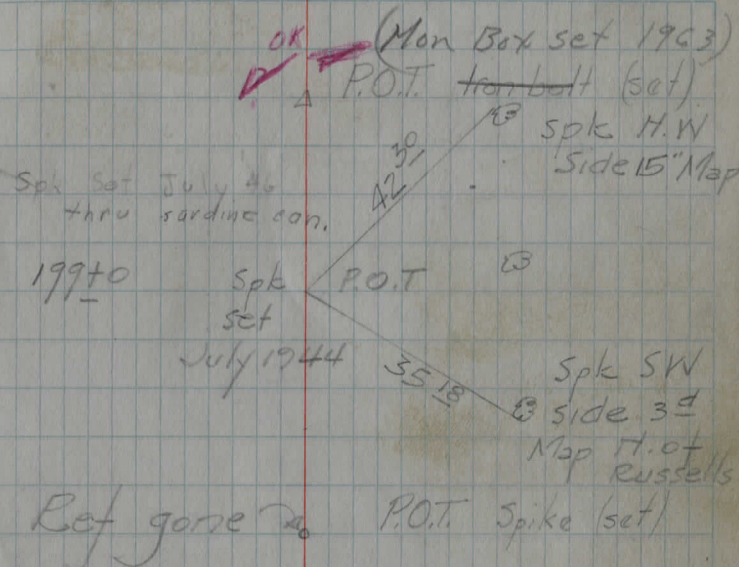 OK (Mon Box set 1963)
P.O.T. Iron bolt (set)
spk N.W
Side 15" Map
42 30
Spk Set July 46
thru sardine can.
199+0
spk P.O.T
set
July 1944
35 18
Spk SW
side 3d
Map N. of
Russells
Ref gone P.O.T. Spike (set)